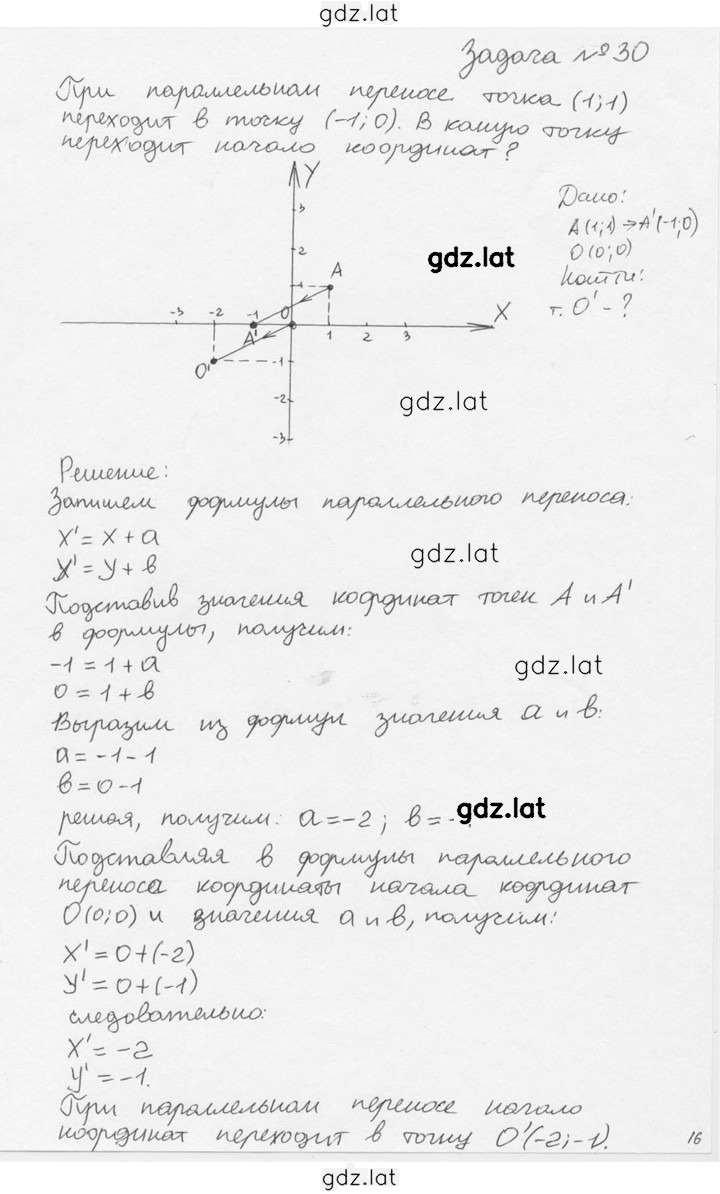 gdz.lat
Задача №30
При параллельном переносе точка (1;1)
переходит в точку (-1;0). В какую точку
переходит начало координат?
Y
Дано:
3
A(1;1)→A'(-1;0)
2
O(0;0)
gdz.lat
A
Найти:
1
т. O' - ?
-3 -2 -1 O
X
A' 1 2 3
O' -1
-2
gdz.lat
-3
Решение:
Запишем формулы параллельного переноса:
X' = X + a
gdz.lat
У' = У + в
Подставив значения координат точек A и A'
в формулы, получим:
-1 = 1 + a
gdz.lat
0 = 1 + в
Выразим из формул значения a и в:
a = -1 - 1
в = 0 - 1
gdz.lat
решая, получим: a = -2; в = -
Подставляя в формулы параллельного
переноса координаты начала координат
O(0;0) и значения a и в, получим:
X' = 0+(-2)
У' = 0+(-1)
следовательно:
X' = -2
У' = -1.
При параллельном переносе начало
координат переходит в точку O'(-2;-1).
16
gdz.lat